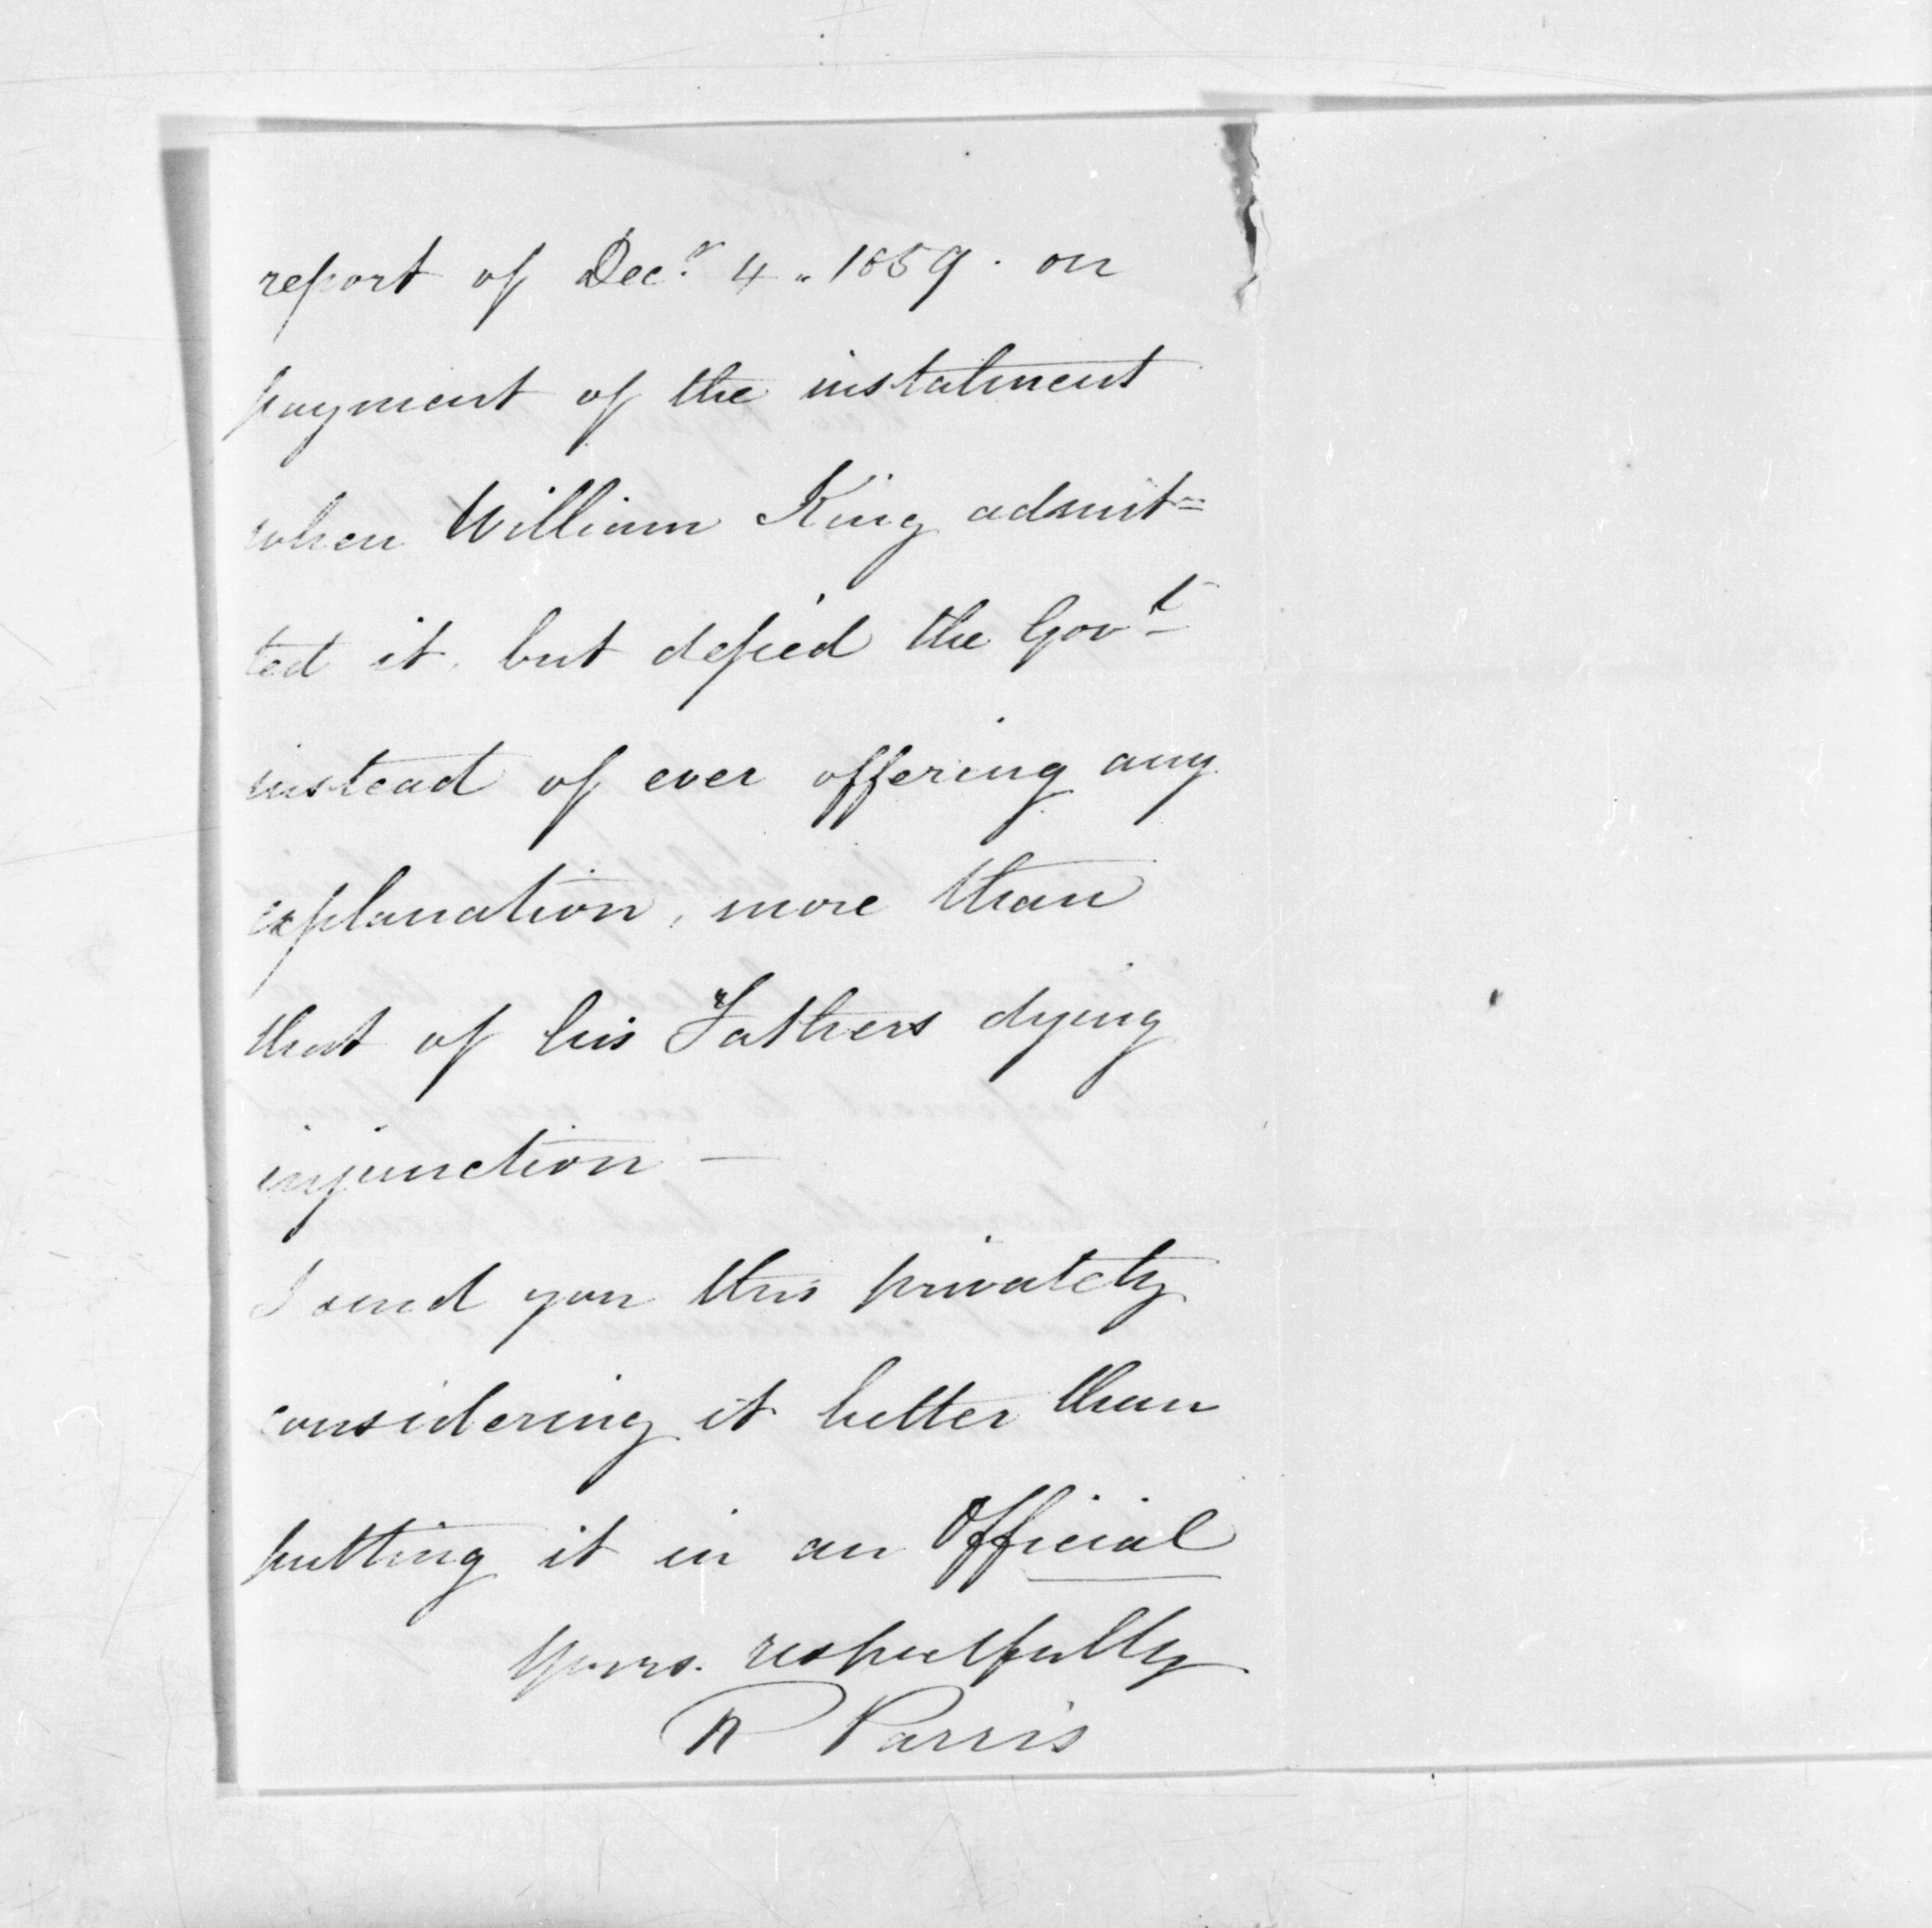 report of Decr. 4 „ 1859. on
payment of the instalment
when William King admit=
ted it, but defied the Govt
instead of ever offering any
explanation, more than
that of his Fathers dying
injunction —
I send you this privately
considering it better than
putting it in an Official
Yours. respectfully
R Parris